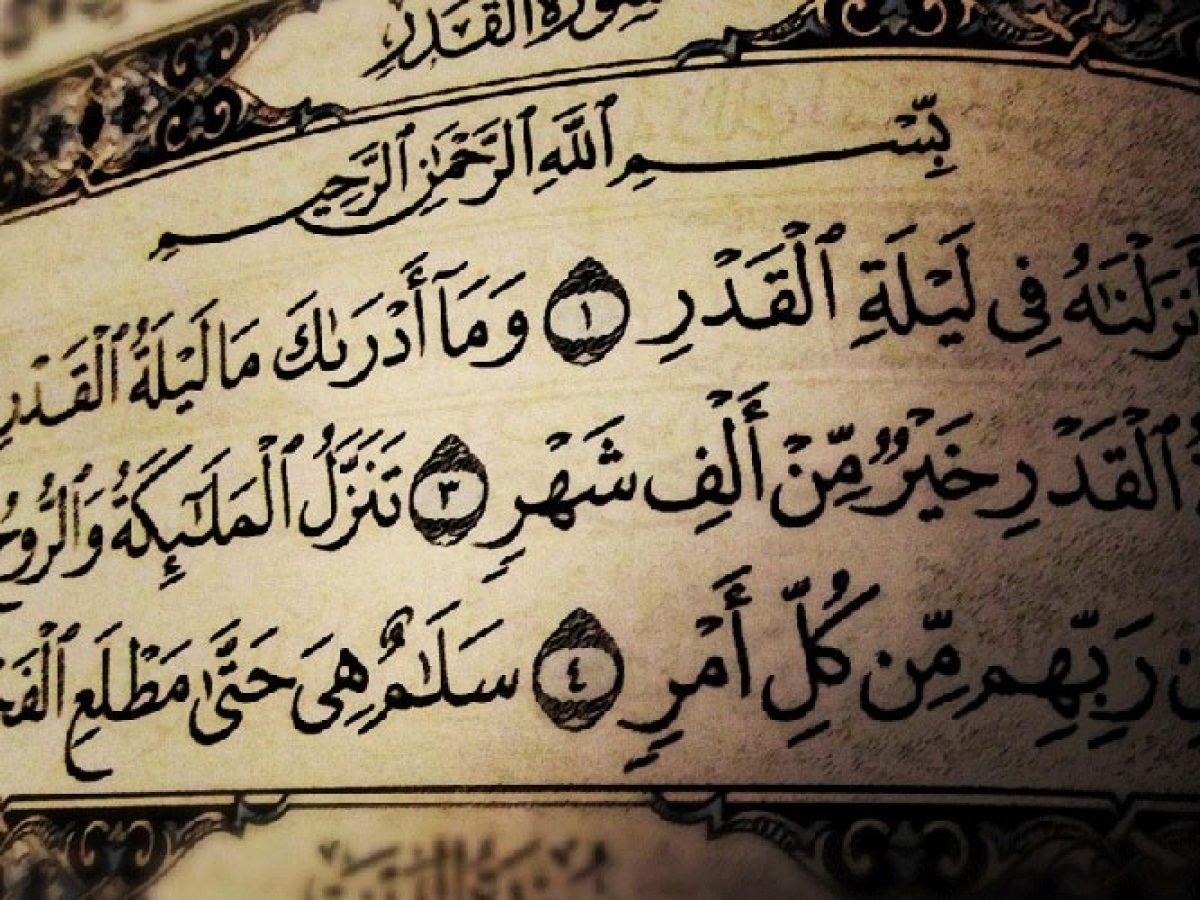 سُورَةُ القَدْرِ
بِسْمِ ٱللَّهِ ٱلرَّحْمَٰنِ ٱلرَّحِيمِ
أَنزَلْنَٰهُ فِى لَيْلَةِ ٱلْقَدْرِ ١ وَمَآ أَدْرَىٰكَ مَا لَيْلَةُ ٱلْقَدْرِ
ٱلْقَدْرِ خَيْرٌ مِّنْ أَلْفِ شَهْرٍ ٣ تَنَزَّلُ ٱلْمَلَٰٓئِكَةُ وَٱلرُّوحُ
رَبِّهِم مِّن كُلِّ أَمْرٍ ٤ سَلَٰمٌ هِىَ حَتَّىٰ مَطْلَعِ